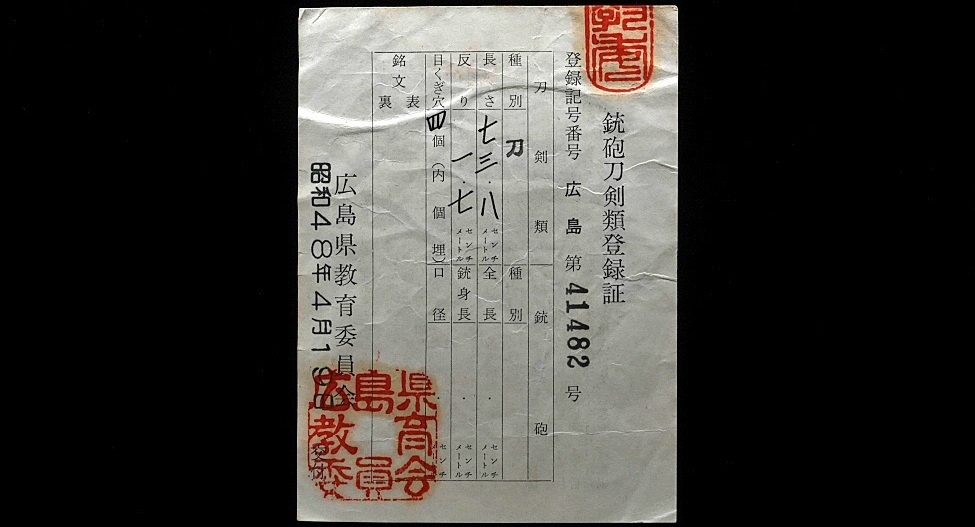 銃砲刀剣類登録証
登録記号番号 広島 第 41482 号
刀剣類 銃砲
種別 刀 種別
長さ 七三.八 センチメートル 全長 . センチメートル
反り 一.七 センチメートル 銃身長 . センチメートル
目くぎ穴 四個(内 個埋) 口径 . センチ
銘文 表
裏
広島県教育委員会
昭和48年4月19日 交付
広島県教育委員会